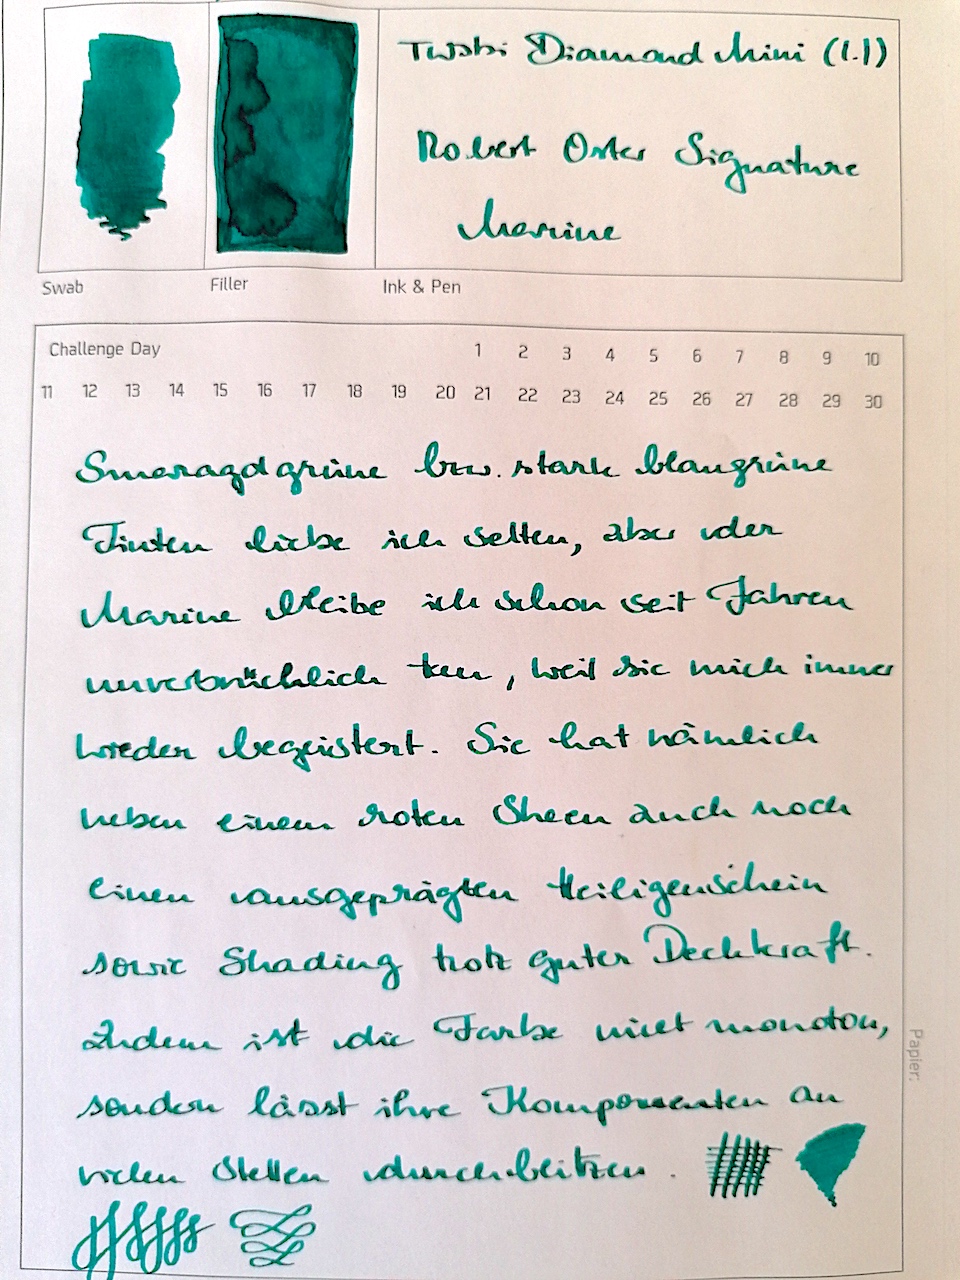 Twsbi Diamond Mini (1.1)
Robert Oster Signature
Marine
Swab
Filler
Ink & Pen
Challenge Day 1 2 3 4 5 6 7 8 9 10
11 12 13 14 15 16 17 18 19 20 21 22 23 24 25 26 27 28 29 30
Smaragdgrüne bzw. stark blaugrüne
Tinten liebe ich selten, aber der
Marine bleibe ich schon seit Jahren
unverbrüchlich treu, weil sie mich immer
wieder begeistert. Sie hat nämlich
neben einem roten Sheen auch noch
einen ausgeprägten Heiligenschein
sowie Shading trotz guter Deckkraft.
Zudem ist die Farbe nicht monoton,
sondern lässt ihre Komponenten an
vielen Stellen durchblitzen.
Papier: